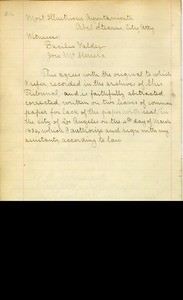 Most Illustrious Ayuntamiento
Abel Stearns, City Atty
Witnesses
Basilio Valdez
José Ma Herrera
This agrees with the original to which
I refer recorded in the archives of this
Tribunal, and is faithfully abstracted
corrected, written on two leaves of common
paper for lack of the paper with seal, in
the City of Los Angeles on the day of March
which I authorize and sign with my
assistants according to law